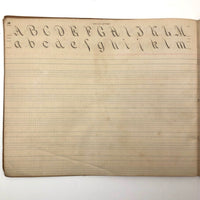 A B C D E F G H I J K L M
a b c d e f g h i j k l m